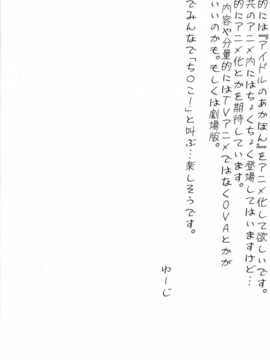 的には『アイドルのあかほん』をアニメ化して欲しいです。
共のアニメ内にはちょくちょく登場してはいますけど…
的にアニメ化とかを期待しています。
内容や分量的にはTVアニメではなくOVAとかが
いいのかも。もしくは劇場版。
でみんなで「ち○こー」と叫ぶ…楽しそうです。
わーじ